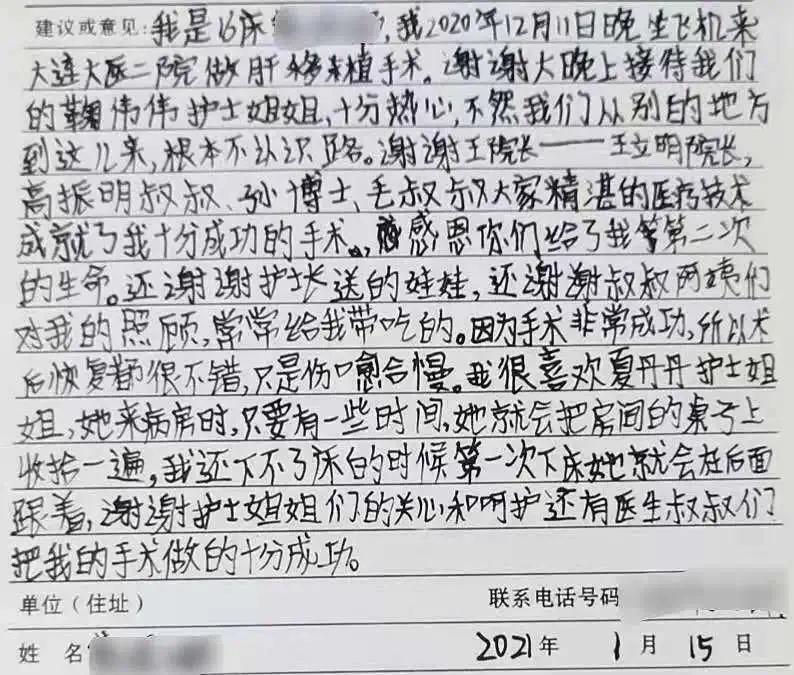 建议或意见:我是16床 ,我2020年12月11日晚坐飞机来
大连大医二院做肝移植手术。谢谢大晚上接待我们
的鞠伟伟护士姐姐,十分热心,不然我们从别的地方
到这儿来,根本不认识路。谢谢王院长——王立明院长,
高振明叔叔、孙博士、毛叔叔大家精湛的医疗技术
成就了我十分成功的手术。感恩你们给了我第二次
的生命。还谢谢护士长送的娃娃,还谢谢叔叔阿姨们
对我的照顾,常常给我带吃的。因为手术非常成功,所以术
后恢复都很不错,只是伤口愈合慢。我很喜欢夏丹丹护士姐
姐,她来病房时,只要有一些时间,她就会把房间的桌子上
收拾一遍,我还下不了床的时候第一次下床她就会在后面
跟着,谢谢护士姐姐们的关心和呵护还有医生叔叔们
把我的手术做的十分成功。
单位(住址) 联系电话号码
姓 名 2021年 1月 15日